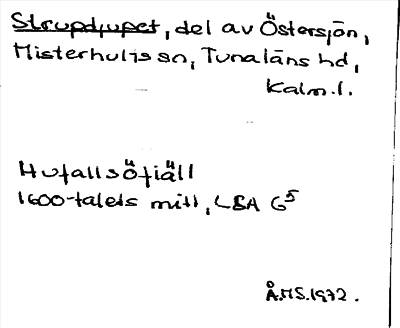 Strupdjupet, del av Östersjön,
Misterhults sn, Tunaläns hd,
Kalm.l.
Hufallsöfiäll
1600-talets mitt, LSA G5
Å.M.S. 1972.